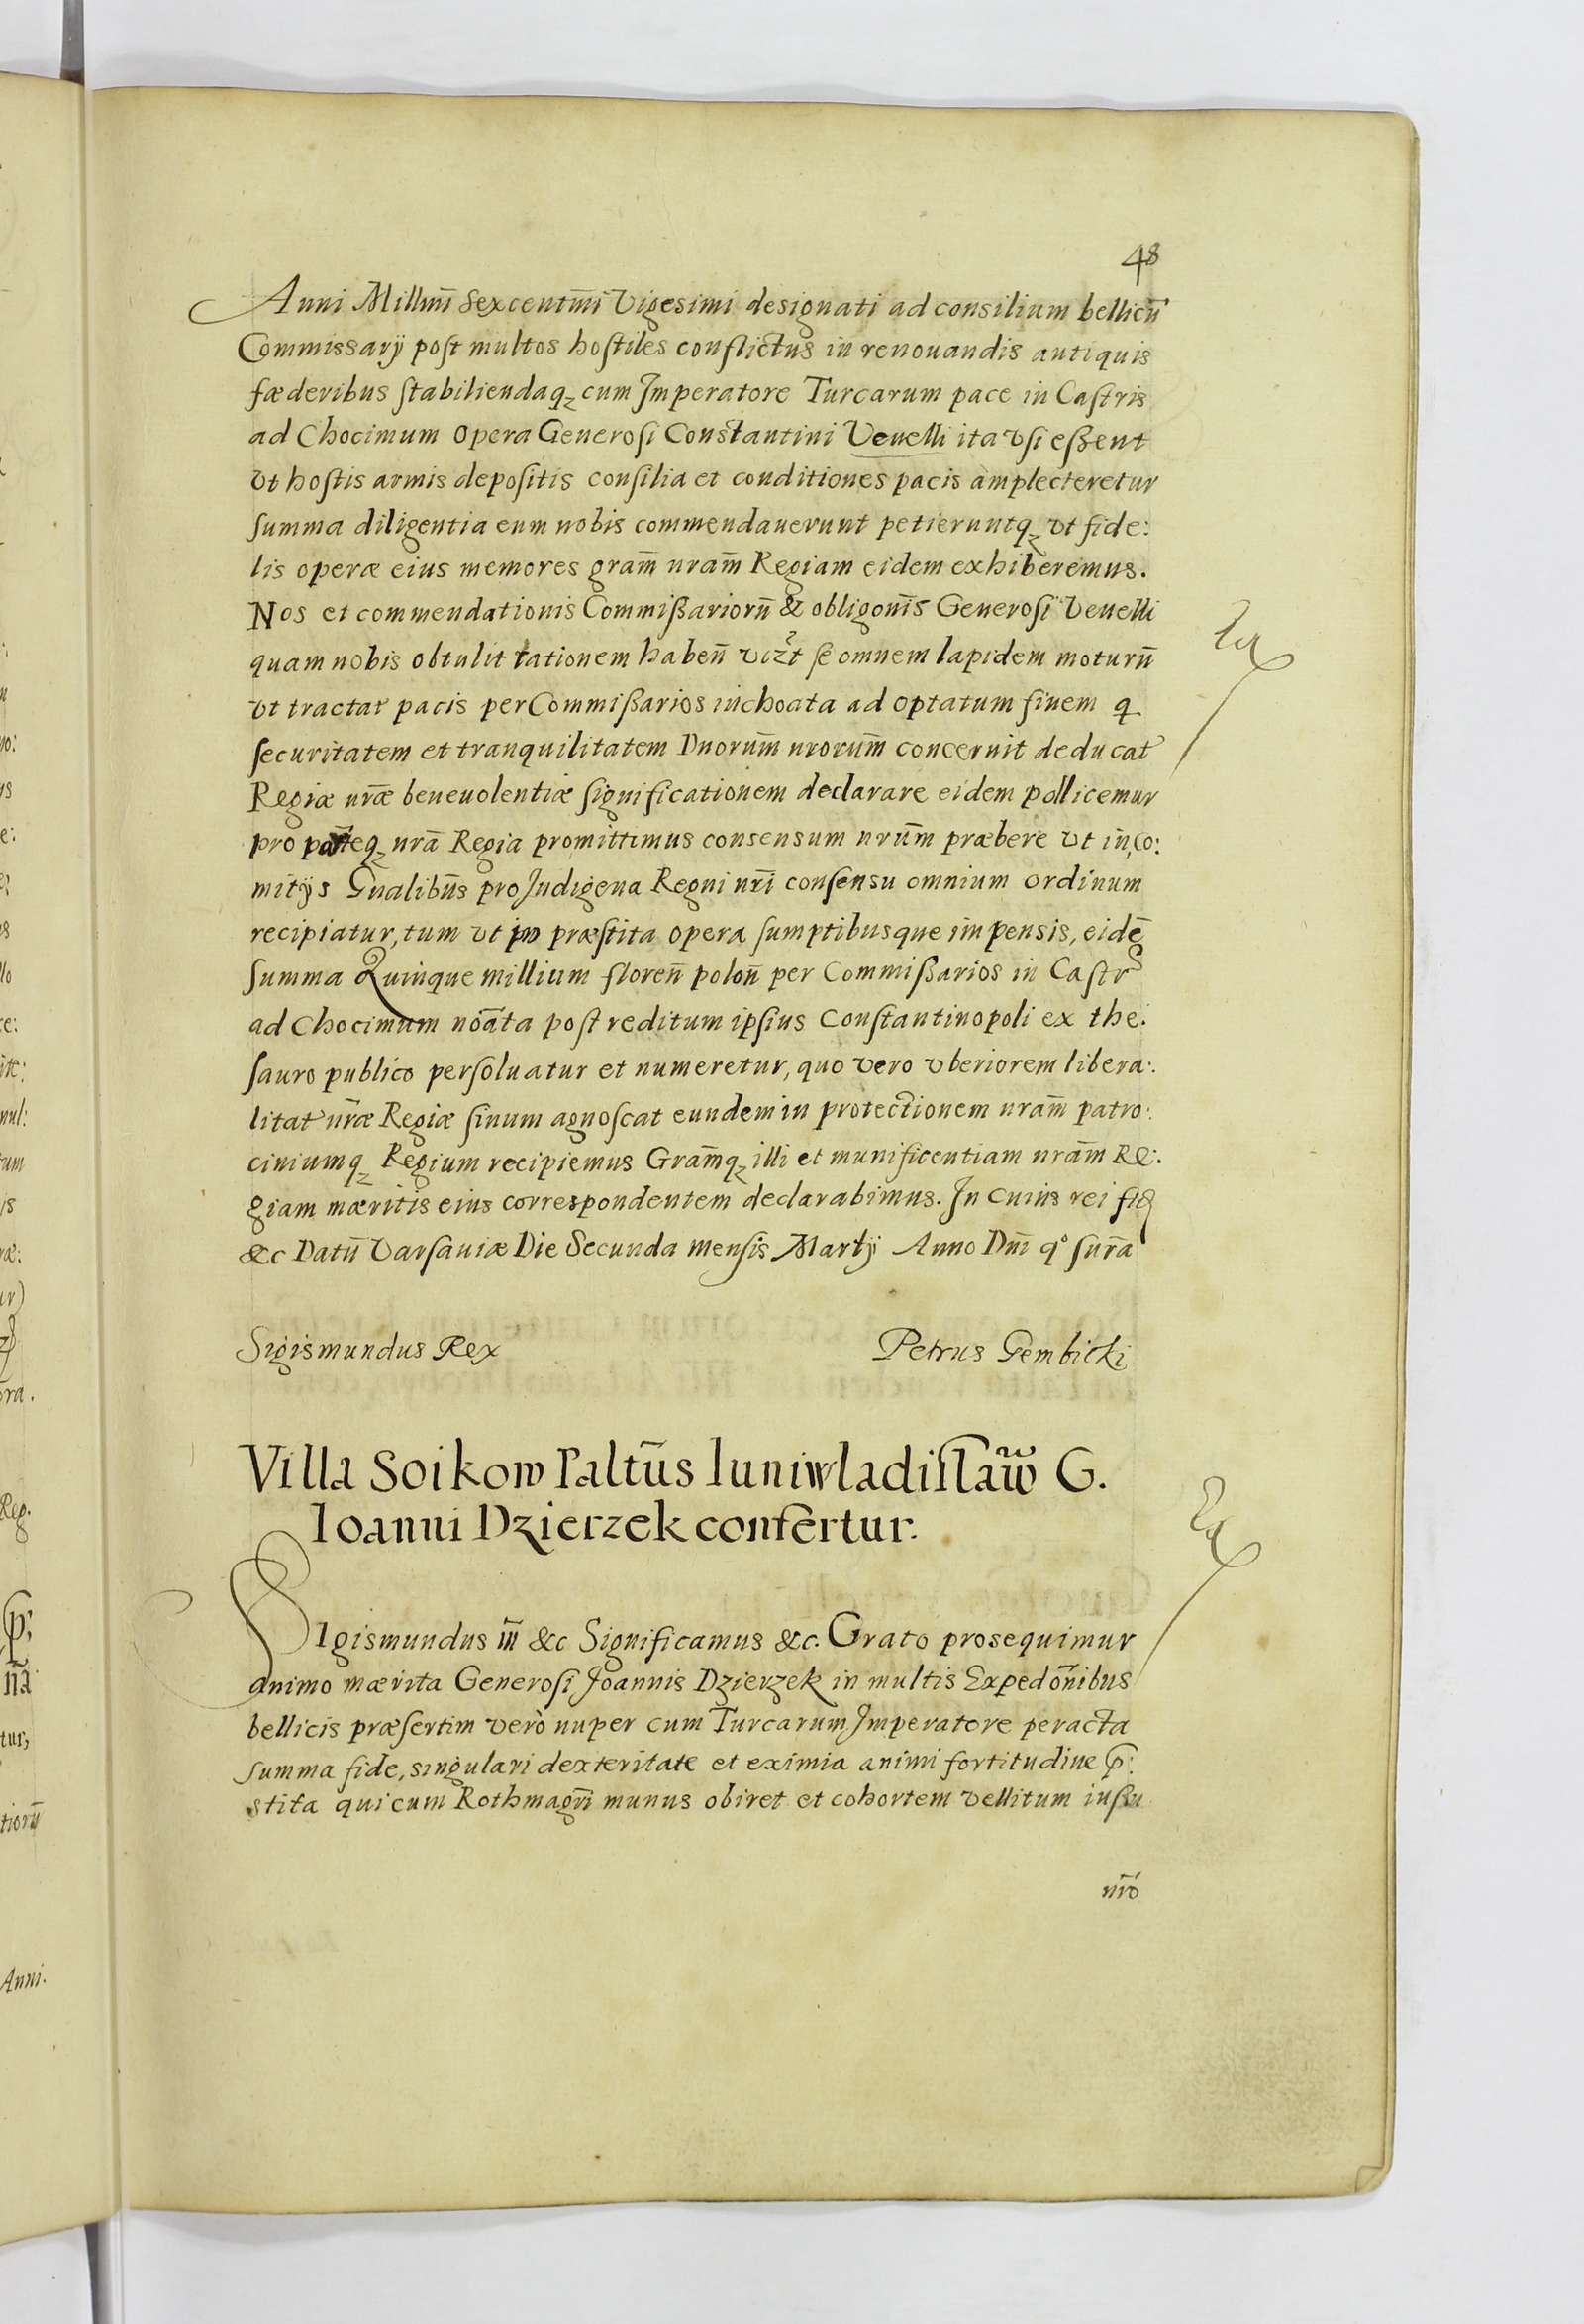 48
Anni Millm̄i Sexcentm̄i Vigesimi designati ad consilium bellicū
Commissarÿ post multos hostiles conflictus in renouandis antiquis
fæderibus stabiliendaqꝫ cum Imperatore Turcarum pace in Castris
ad Chocimum opera Generosi Constantini Veuelli ita vsi eßent
vt hostis armis depositis consilia et conditiones pacis amplecteretur
summa diligentia eum nobis commendauerunt petieruntqꝫ vt fide:
lis operæ eius memores gram̄ nram̄ Regiam eidem exhiberemus.
Nos et commendationis Commißariorū & obligonīs Generosi Veuelli
quam nobis obtulit rationem habeñ vizt se omnem lapidem moturū
vt tractat pacis per Commißarios inchoata ad optatum finem q
securitatem et tranquilitatem Dnorum̄ nrorum̄ concernit deducat
Regiæ nr̄æ beneuolentiæ significationem declarare eidem pollicemur
pro par̄teqꝫ nrā Regia promittimus consensum nrum̄ præbere vt in co:
mitÿs Gnalibūs pro Indigena Regni nrī consensu omnium ordinum
recipiatur, tum vt pro præstita opera sumptibusque impensis, eidē
summa Quinque millium floreñ poloñ per Commißarios in Castr
ad Chocimum noāta post reditum ipsius Constantinopoli ex the:
sauro publico persoluatur et numeretur, quo vero vberiorem libera:
litat nrǣ Regiæ sinum agnoscat eundem in protectionem nram̄ patro:
ciniumqꝫ Regium recipiemus Gram̄qꝫ illi et munificentiam nram̄ Re:
giam mæritis eius correspondentem declarabimus. In cuius rei fid
&c Datū Varsauiæ Die Secunda mensis Martÿ Anno Dnī qo surā
Sigismundus Rex Petrus Gembicki
Villa Soikow Paltūs Iuniwladislaw̄ G.
Ioanni Dzierzek confertur.
SIgismundus III &c Significamus &c. Grato prosequimur
animo mærita Generosi Joannis Dzierzek in multis Expedōnibus
bellicis præsertim verò nuper cum Turcarum Imperatore peracta
summa fide, singulari dexteritate et eximia animi fortitudine p̄:
stita qui cum Rothmagrī munus obiret et cohortem vellitum iußu
nrō